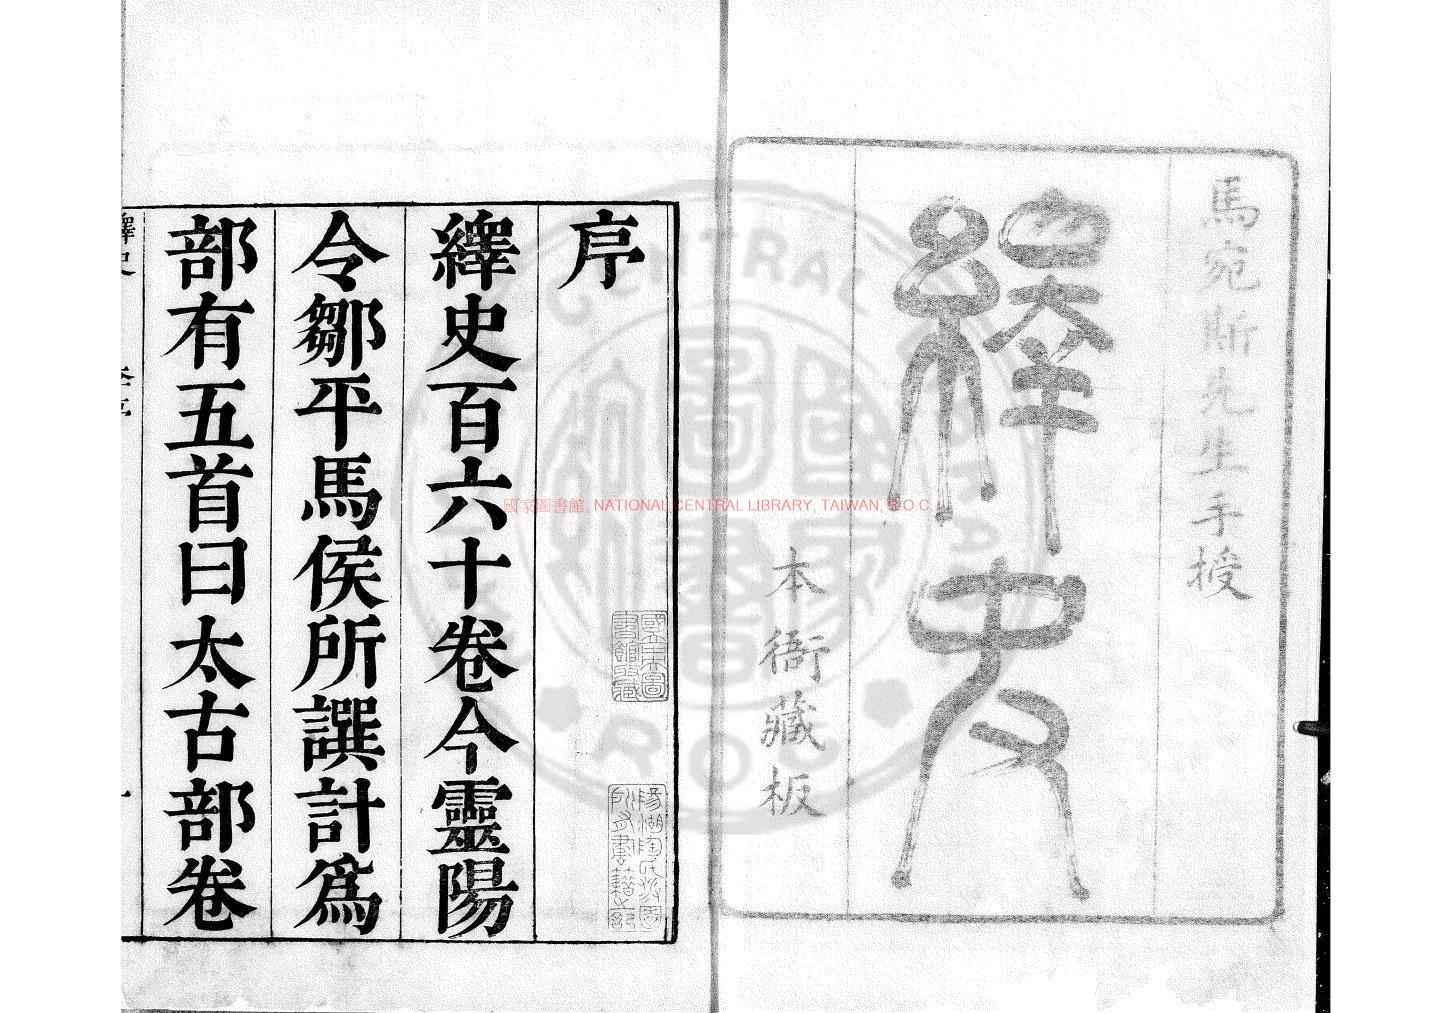 馬宛斯先生手授
繹史
本衙藏板
序
繹史百六十卷今靈陽
令鄒平馬侯所譔計爲
部有五首曰太古部卷
國家圖書館, NATIONAL CENTRAL LIBRARY, TAIWAN, R.O.C
國家圖書
CENTRAL LIBRARY
R.O.C